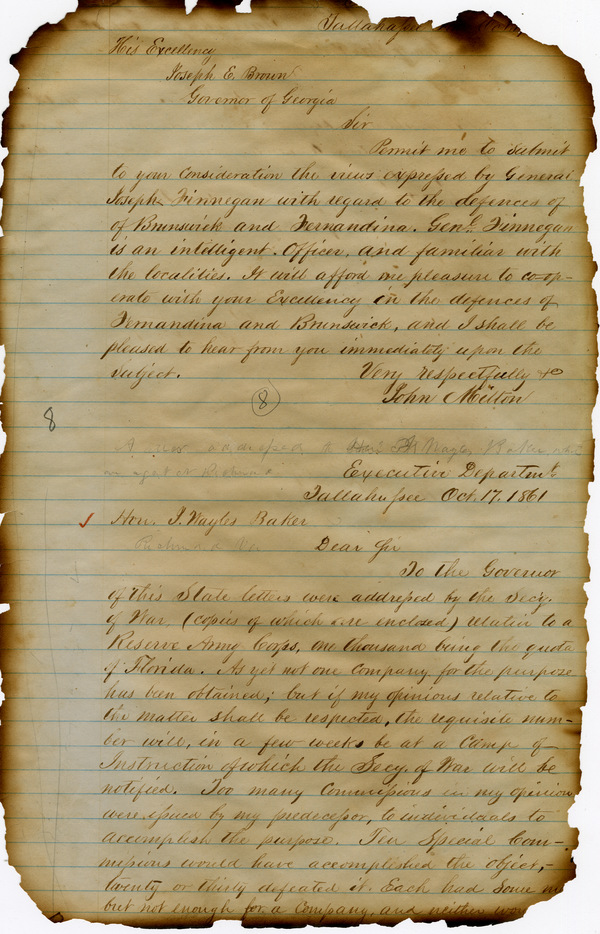 Tallahassee
His Excellency
Joseph E. Brown
Governor of Georgia
Sir
Permit me to submit
to your consideration the views expressed by General
Joseph Finnegan with regard to the defences of
of Brunswick and Fernandina. Genl. Finnegan
is an intelligent Officer, and familiar with
the localities. It will afford me pleasure to co-op-
erate with your Excellency in the defences of
Fernandina and Brunswick, and I shall be
pleased to hear from you immediately upon the
subject. Very respectfully &c
John Milton
8
8
addressed Wayles Baker
Executive Departmt.
Tallahassee Oct. 17. 1861
Hon. J. Wayles Baker
Richmond Va Dear Sir
To the Governor
of this State letters were addressed by the Secy.
of War, (copies of which are enclosed) relative to a
Reserve Army Corps, one thousand being the quota
of Florida. As yet not one Company for the purpose
has been obtained; but if my opinions relative to
the matter shall be respected, the requisite num-
ber will, in a few weeks be at a Camp of
Instruction of which the Secy. of War will be
notified. Too many Commissions in my opinion
were issued by my predecessor, to individuals to
accomplish the purpose. Ten Special Com-
missions would have accomplished the object,-
twenty or thirty defeated it. Each had some
but not enough for a Company, and neither